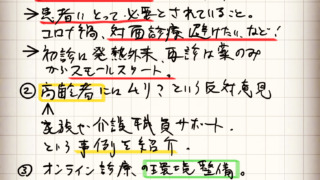 →患者にとって必要とされていること。
コロナ禍、対面診療避けたい、など!
→初診は発熱外来、再診は薬のみ
からスモールスタート。
②高齢者にはムリ?という反対意見
家族や介護職員サポート.
という事例を紹介.
③オンライン診療の環境整備。